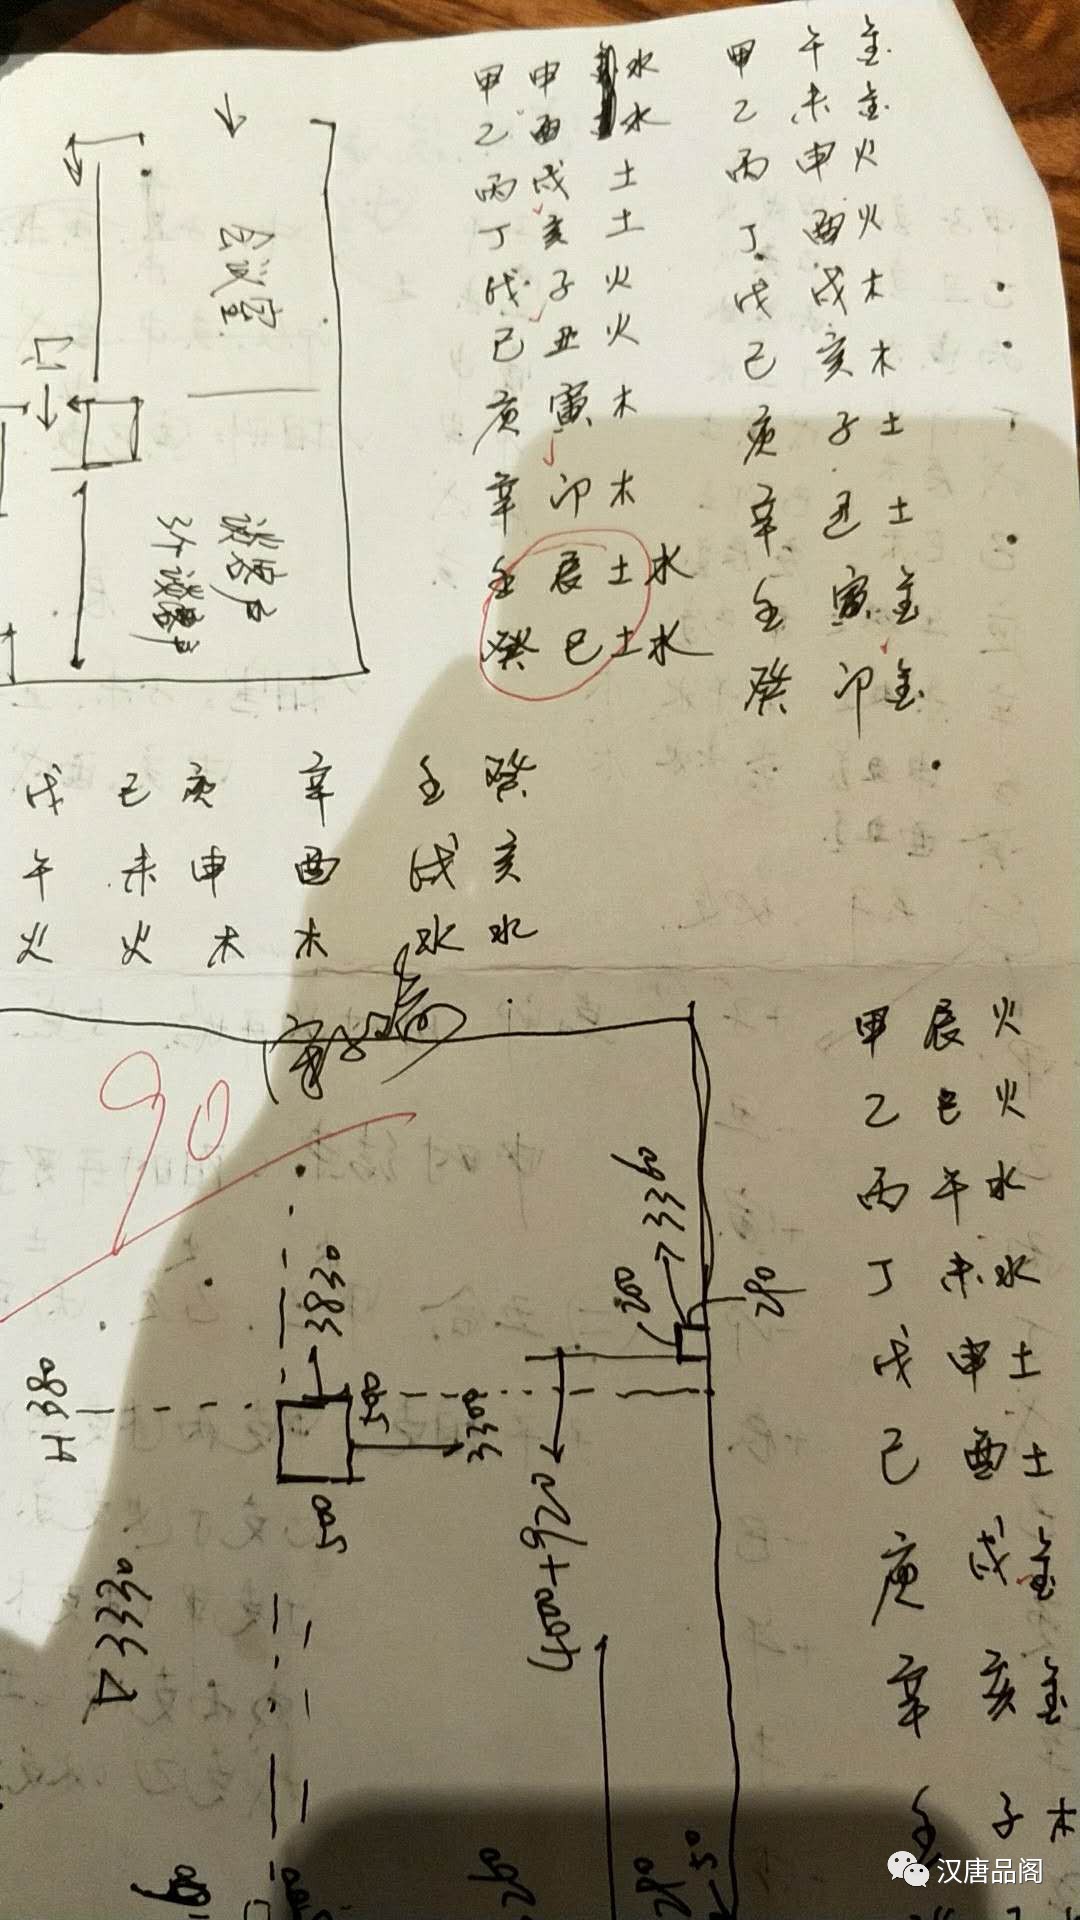 甲申水
乙酉水
丙戌土
丁亥土
戊子火
己丑火
庚寅木
辛卯木
壬辰土水
癸巳土水
甲午金
乙未金
丙申火
丁酉火
戊戌木
己亥木
庚子土
辛丑土
壬寅金
癸卯金
会议室
谈客户
3个谈客户
戊 己 庚 辛 壬 癸
午 未 申 酉 戌 亥
火 火 木 木 水 水
90
甲辰火
乙巳火
丙午水
丁未水
戊申土
己酉土
庚戌金
辛亥金
壬子木
3360
200
290
3830
H380
3300
4000+920
3330
260
290
50
汉唐品阁